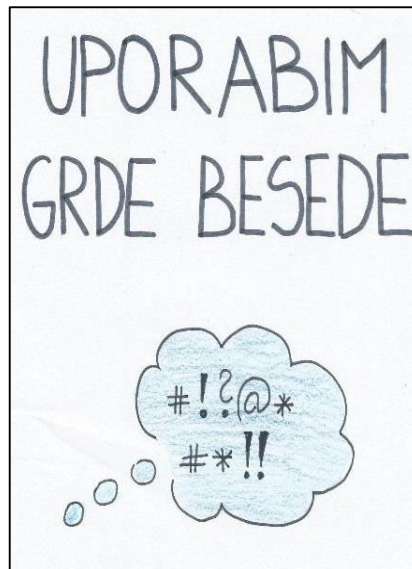 UPORABIM
GRDE BESEDE
#!?@*
#*!!